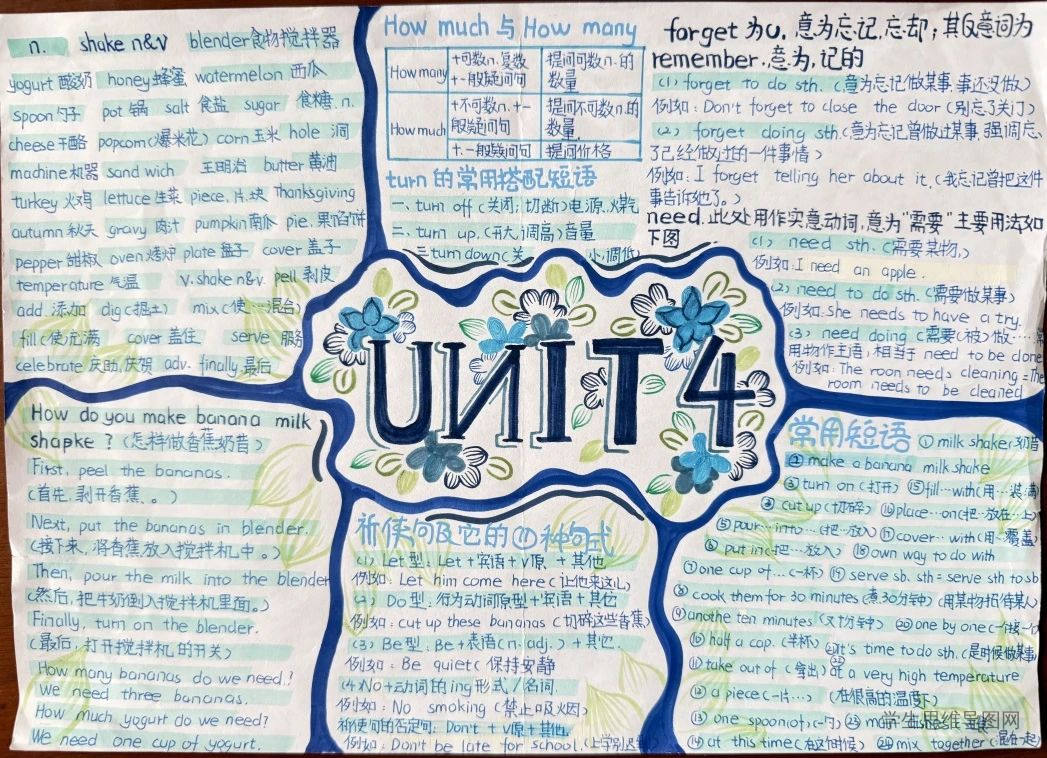 n. shake n&v blender食物搅拌器
yogurt 酸奶 honey蜂蜜 watermelon 西瓜
spoon勺子 pot 锅 salt 食盐 sugar 食糖.n.
cheese干酪 popcorn(爆米花) corn玉米 hole 洞
machine机器 sandwich 三明治 butter 黄油
turkey 火鸡 lettuce 生菜 piece.片.块 Thanksgiving
autumn秋天 gravy 肉汁 pumpkin南瓜 pie.果馅饼
pepper甜椒 oven烤炉 plate盘子 cover 盖子
temperature 气温 v.shake n&v. pell 剥皮
add.添加 dig(掘土) mix(使…混合)
fill(使充满 cover 盖住 serve 服务
celebrate 庆助.庆贺 adv. finally 最后
How much 与 How many
How many +可数n.复数 +一般疑问句 提问可数n.的数量
How much +不可数n.+一般疑问句 提问不可数n.的数量.
+.一般疑问句 提问价格
turn的常用搭配短语
一、turn off (关闭;切断)电源.煤气
二、turn up.(开大;调高)音量
三turn down(关小,调低
forget 为v.意为忘记.忘却;其反意词为
remember.意为,记的
(1) forget to do sth.(意为忘记做某事.事还没做)
例如:Don't forget to close the door(别忘了关门)
(2) forget doing sth.(意为忘记曾做过某事.强调忘
了已经做过的一件事情)
例如:I forget telling her about it.(我忘记曾把这件
事告诉她了。)
need.此处用作实意动词,意为"需要"主要用法如
下图
(1) need sth.(需要某物,)
例如:I need an apple.
(2) need to do sth.(需要做某事)
例如:She needs to have a try.
(3) need doing (需要(被)做…
用物作主语,相当于need to be done
例如:The roon needs cleaning =The
room needs to be cleaned
UNIT 4
How do you make banana milk
shapke ? (怎样做香蕉奶昔)
First, peel the bananas.
(首先.剥开香蕉.。)
Next, put the bananas in blender.
(接下来,将香蕉放入搅拌机中。)
Then, pour the milk into the blender
(然后,把牛奶倒入搅拌机里面。)
Finally, turn on the blender.
(最后:打开搅拌机的开关)
How many bananas do we need?
We need three bananas.
How much yogurt do we need?
We need one cup of yogurt.
祈使句及它的(4)种句式
(1) Let型:Let+宾语+v原 +其他
例如:Let him come here(让他来这儿)
(2) Do型:行为动词原型+宾语+其它
例如:cut up these bananas (切碎这些香蕉)
(3) Be型:Be+表语(n.adj.) +其它.
例如:Be quiet(保持安静
(4)No+动词的ing形式/名词.
例如:No smoking (禁止吸烟)
祈使句的否定句:Don't +v原+其他
例如:Don't be late for school.(上学别迟
常用短语 ①milk shaker奶昔
②make a banana milk shake
③turn on(打开) ⑮fill…with(用…装满)
④cut up(切碎) ⑯place…on(把…放在…上)
⑤pour…into…(把…放入) ⑰cover…with(用…覆盖)
⑥put in(把…放入) ⑱own way to do with
⑦one cup of…(一杯) ⑲serve sb. sth= serve sth to sb
⑧cook them for 30 minutes(煮30分钟)(用某物招待某人)
⑨anothe ten minutes(又十分钟) ⑳one by one(一接一
⑩half a cap.(半杯) ㉑It's time to do sth.(是时候做某事)
⑪take out of(拿出) ㉒at a very high temperature
⑫a piece(一片…) (在很高的温度下)
⑬one spoonof(一勺) ㉓
⑭at this time(在这时候) ㉔mix together(混在一起)
学生思维导图网